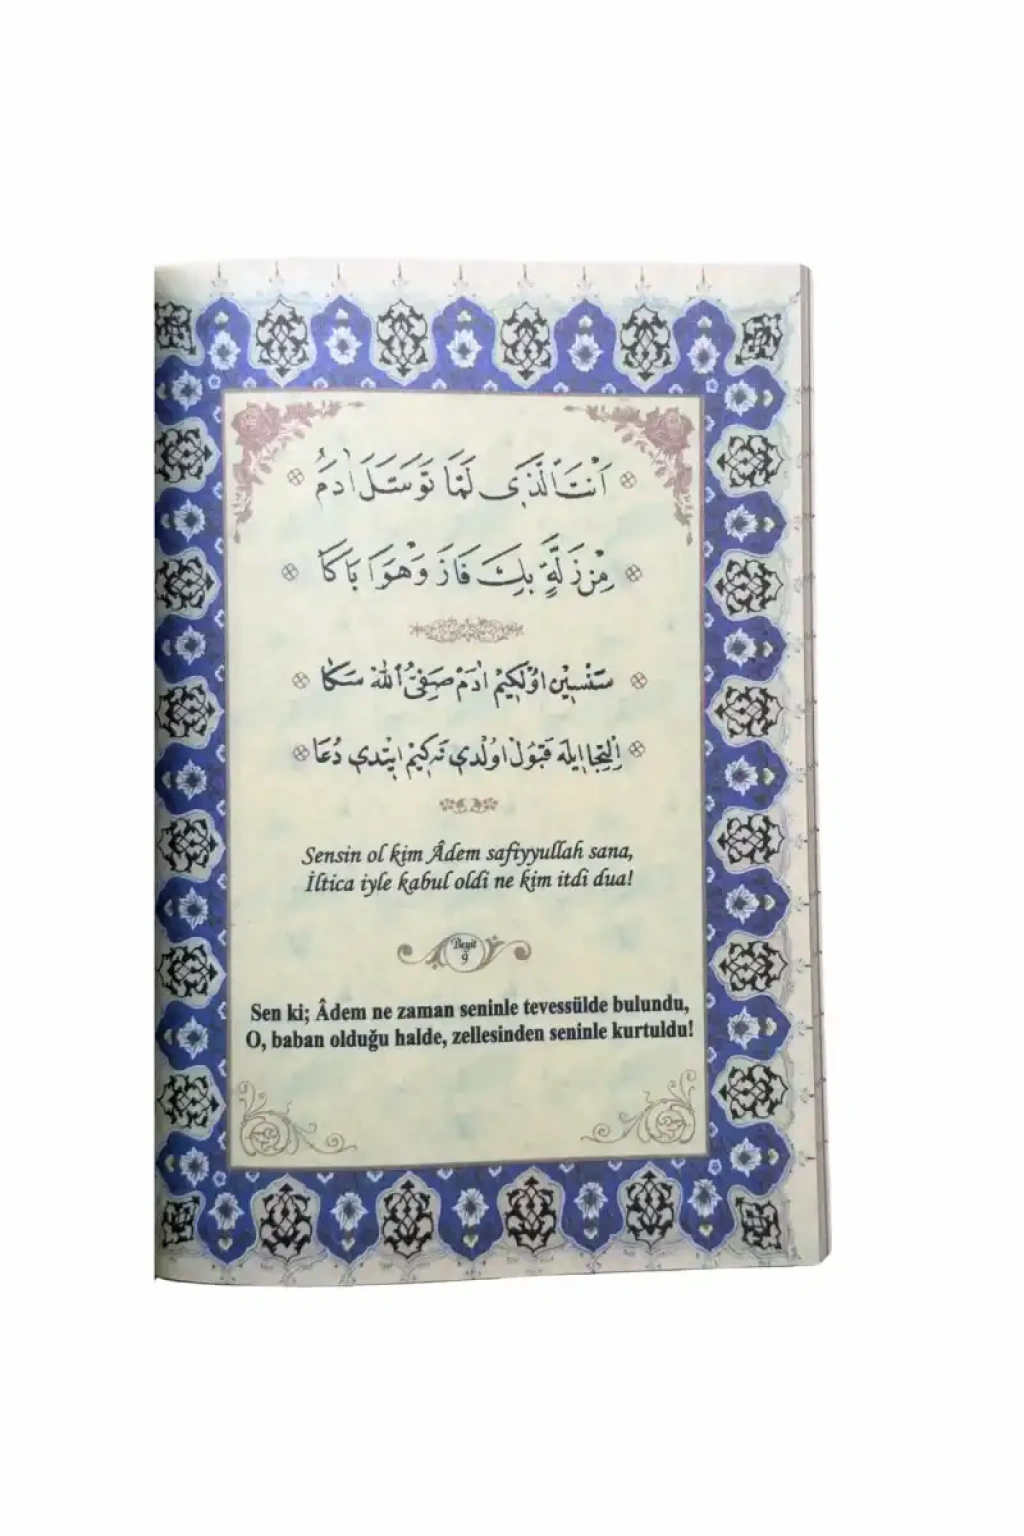 اَنْتَ الَّذَي لَمَّا تَوَسَّلَ اٰدَمُ
مِنْ زَلَّةٍ بِكَ فَازَ وَهْوَ اَبَاكَا
سَنْسِيْن اوُلْكِيمْ اٰدَمْ صَفِىُّ اللّٰهْ سَكَا
اِلْتِجَا ايلَه قَبُولْ اوُلْدِي نَه كِيمْ ايتْدِي دُعَا
Sensin ol kim Âdem safiyyullah sana,
İltica iyle kabul oldi ne kim itdi dua!
Beyit
9
Sen ki; Âdem ne zaman seninle tevessülde bulundu,
O, baban olduğu halde, zellesinden seninle kurtuldu!